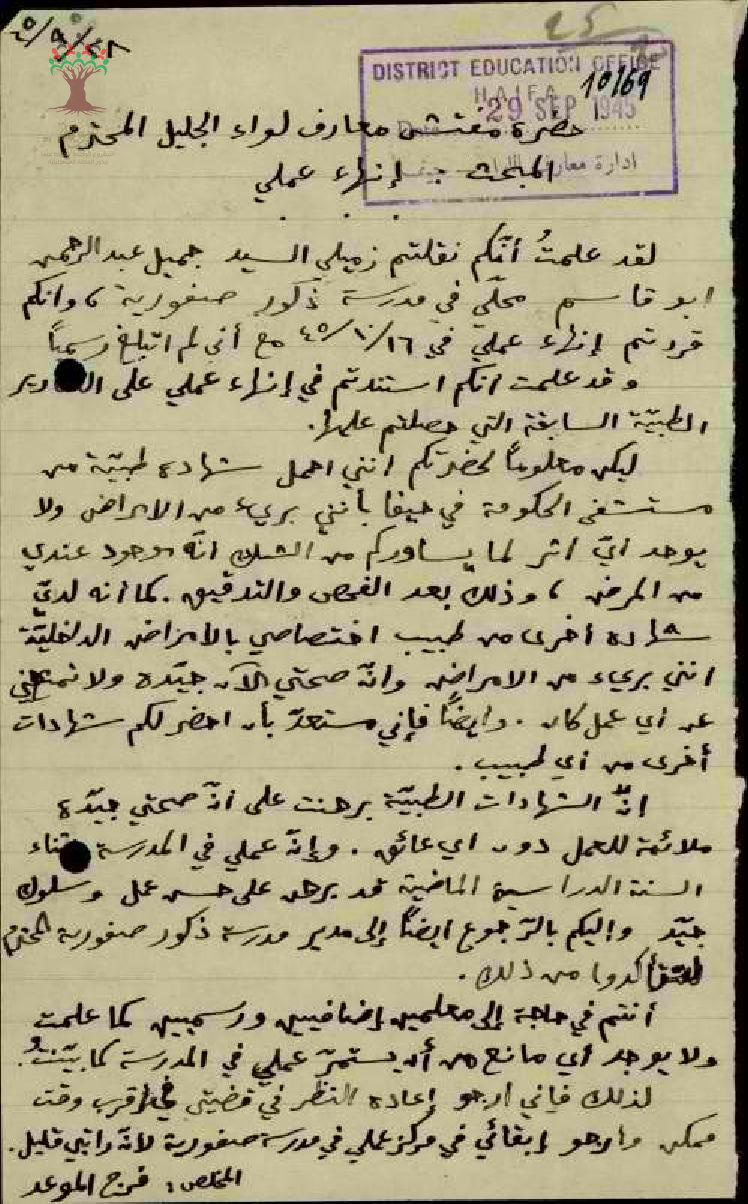 ٤٥/٩/٢٨
DISTRICT EDUCATION OFFICE
HAIFA
10/69
29 SEP 1945
ادارة معارف
حضرة مفتش معارف لواء الجليل المحترم
المبحث : إنهاء عملي
لقد علمتُ أنّكم نقلتم زميلي السيد جميل عبد الرحمن
ابو قاسم محلّي في مدرسة ذكور صفورية ، وانكم
قررتم إنهاء عملي في ٤٥/١٠/١٦ مع أني لم اتبلغ رسمياً
وقد علمت انكم استندتم في إنهاء عملي على
الطبيّة السابقة التي حصلتم عليها.
ليكن معلوماً لحضرتكم انني احمل شهادة طبيّة من
مستشفى الحكومة في حيفا بأنني بريء من الامراض ولا
يوجد أيّ اثر لما يساوركم من الشك انّه موجود عندي
من المرض ، وذلك بعد الفحص والتدقيق . كما أنه لديّ
شهادة أخرى من طبيب اختصاصي بالامراض الداخليّة
انني بريء من الامراض وانّ صحتي الآن جيّدة ولا تمنعني
عن أي عمل كان . وايضاً فإني مستعدّ بأن احضر لكم شهادات
أخرى من أي طبيب .
انّ الشهادات الطبيّة برهنت على انّ صحتي جيّدة
ملائمة للعمل دون اي عائق . وإنّ عملي في المدرسة
السنة الدراسية الماضية قد برهن على حسن عمل وسلوك
جيّد وإليكم بالرّجوع ايضاً إلى مدير مدرسة ذكور صفورية المحترم
لتتأكدوا من ذلك .
أنتم في حاجة إلى معلمين إضافيين ورسميين كما علمت
ولا يوجد أي مانع من أن يستمرّ عملي في المدرسة كما بيّنتُ .
لذلك فإني أرجو إعادة النظر في قضيتي في اقرب وقت
ممكن وأرجو إبقائي في مركز عملي في مدرسة صفورية لأنّ راتبي قليل .
المخلص : فرج الموعد